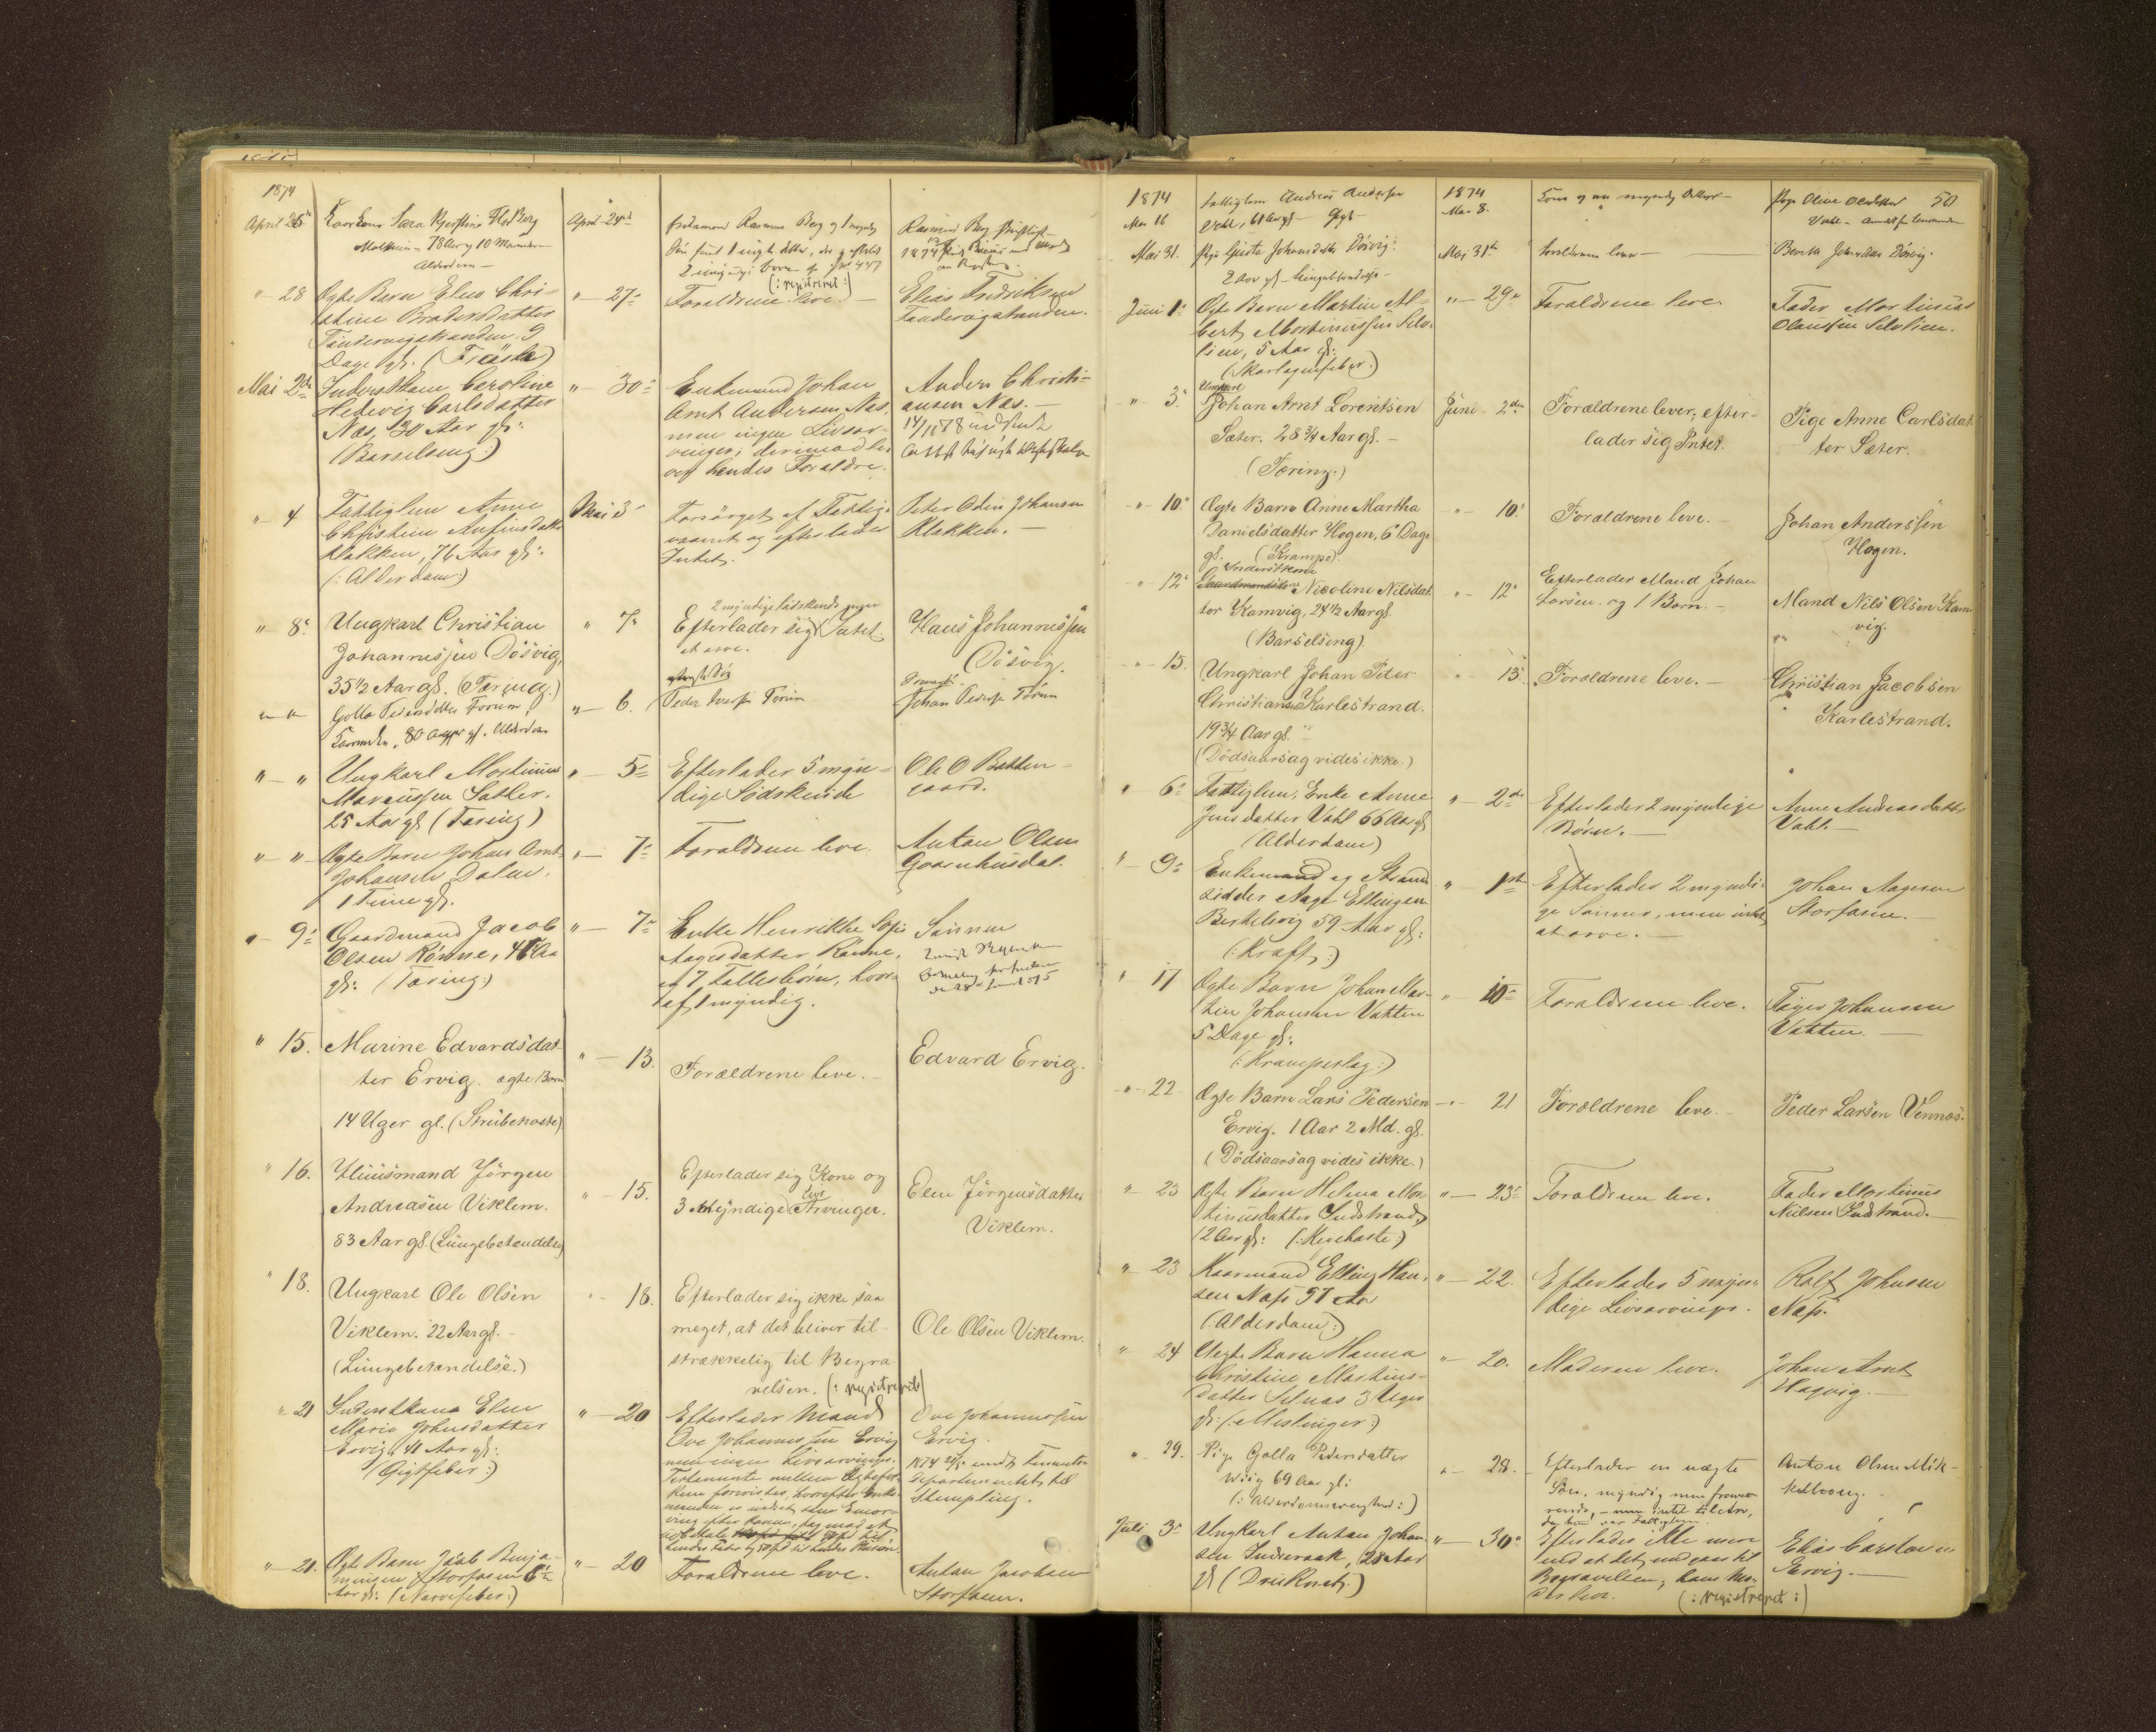 1874
April 25
Kaarkone Sara
78 Aar og 10 Maaneder
Alderdom —
April 24
Enkemand Rasmus Berg og 1 myndig
(: registreret :)
Rasmus Berg
" 28
Ægte Barn Elen Chri-
stine Brodersdatter
Tandervigstranden. 9
Dage gl. (Trøske)
" — 27
Forældrene leve. —
Elias Fredriksen
Tandervigstranden.
Mai 2den
Inderstkone Caroline
Hedevig Carlsdatter
Næs, 30 Aar gl:
(Barselseng)
" — 30
Enkemand Johan
Arnt Andersen Næs,
men ingen Livsar-
vinger; derimod le-
ver hendes Forældre.
Anders Christi-
ansen Næs. —
"- 4
Fattiglem Anne
Christine
Klakken, 76 Aar gl:
(: Alderdom :)
Mai 3
Forsørget af Fattig-
væsenet og efterlader
Intet.
Peter Odin Johansen
Klakken. —
" 8
Ungkarl Christian
Johannessen Døsvig,
35 1/2 Aar gl. (Tæring.)
" 7
2 myndige Sødskende, ingen
Efterlader sig Intet
at arve.
Hans Johannessen
Døsvig.
" "
Golla Pedersdatter Forum,
80 Aar gl. Alderdom
" 6.
Peder Forum
Johan Peders. Forum
" — "
Ungkarl Mortinus
Marcussen Satler.
25 Aar gl (Tæring)
" — 5
Efterlader 5 myn-
dige Sødskende
Ole O Batten-
gaard.
" — "
Ægte Barn Johan Arnt
Johansen Dalen.
1 Time gl.
" — 7
Forældrene leve.
Anton Olsen
Gaarnhusdal.
" 9
Gaardmand Jacob
Olsen Rømme, Aar
gl: (Tæring)
" — 7
Enke Henrikke
Aagesdatter Rømme,
og 7 Fællesbørn, hvor-
af 1 myndig.
Sønnen
" 15.
Marine Edvardsdat-
ter Ervig. ægte Barn
14 Uger gl. (Strubehoste)
" — 13.
Forældrene leve. —
Edvard Ervig.
" 16.
Huusmand Jørgen
Andreasen Viklem.
83 Aar gl. (Lungebetændelse)
" — 15.
Efterlader sig Kone og
3 myndige Livs Arvinger.
Elen Jørgensdatter
Viklem.
" 18.
Ungkarl Ole Olsen
Viklem. 22 Aar gl. —
(Lungebetændelse.)
" 18.
Efterlader sig ikke saa
meget, at det bliver til-
strækkelig til Begra
velsen. (: registreret)
Ole Olsen Viklem.
"- 21
Inderstkone Elen
Marie Johnsdatter
Ervig, 41 Aar gl:
(Gigtfeber :)
" — 20
Efterlader Mand
Ove Johannessen Ervig
men ingen Livsarvinger.
Testamente mellem Ægtefol-
kene
Ove Johannessen
Ervig.
Departementet til
Stempling.
" — 21.
Ægte Barn Jacob Benja-
minsen Storfosen
Aar gl: (Nervefeber :)
" — 20
Forældrene leve.
Anton Jacobsen
Storfosen.
50
1874
Mai 16
Fattiglem Andreas Andersen
Vahl, 61 Aar gl — Gigt —
1874
Mai 8.
Kone og en myndig Datter —
Pige Oline Olsdatter
Vahl —
Mai 31.
Pige Johansdatter Døsvig.
2 Aar gl — Lungebetændelse —
Mai 31te
Forældrene leve —
Berith Johnsdatter Døsvig.
Juni 1
Ægte Barn Martin Al-
bert Mortinussen Selv-
lien, 5 Aar gl:
(Skarlagensfeber.)
"— 29
Forældrene leve.
Fader Mortinus
Olausen Selvlien.
" — 3.
Ungkarl
Johan Arnt Lorentsen
Sæter. 28 3/4 Aar gl. —
(Tæring.)
Juni — 2den
Forældrene lever; efter-
lader sig Intet.
Pige Anne Carlsdat-
ter Sæter.
"— 10.
Ægte Barn Anne Martha
Danielsdatter Hogen, 6 Dage
gl. (Krampe).
" — 10.
Forældrene leve. —
Johan Anderssen
Hogen.
" — 12
Inderstkone
Nicoline Nilsdat-
ter Kamvig, 24 1/2 Aar gl.
(Barselseng).
" — 12
Efterlader Mand Johan
Larsen og 1 Barn. —
Mand Nils Olsen Kam
vig.
" — 15.
Ungkarl Johan Peter
Christiansen Karlestrand.
19 3/4 Aar gl. —
(Dødsaarsag vides ikke.)
" 13
Forældrene leve. —
Christian Jacobsen
Karlestrand.
" 6
Fattiglem, Enke Anne
Jensdatter Vahl 66 Aar gl
(Alderdom)
" — 2den
Efterlader 2 myndige
Børn. —
Anne Andreasdatter
Vahl. —
" — 9
Enkemand og Strand-
sidder Aage Ellingsen
Berkelvig 59 Aar gl:
(Kræft :)
" — 1ste
Efterlader 2 myndi-
ge Sønner, men intet
at arve. —
Johan Aagesen
Storfosen. —
" 17
Ægte Barn Johan Mar-
tin Johansen Vatten
5 Dage gl:
(: Krampeslag :)
" — 10
Forældrene leve.
Johansen
Vatten. —
"- 22
Ægte Barn Lars Pedersen
Ervig. 1 Aar 2 Md. gl.
(Dødsaarsag vides ikke.)
— " 21
Forældrene leve. —
Peder Larsen Vennæs.
"- 23
Ægte Barn Helena Mor-
tinusdatter Indstrand,
2 Aar gl: (Kighoste :)
" — 23
Forældrene leve.
Fader Mortinus
Nielsen Indstrand. —
" — 23
Kaarmand Elling Han-
sen Næss 97 Aar
(: Alderdom :)
" — 22.
Efterlader 5 myn-
dige Livsarvinger.
Rolf Johnsen
Næss.
" 24
Uægte Barn Hanna
Christine Martins-
datter Selnæs 3 Uger
gl: (: Meslinger :)
"- 20.
Moderen leve.
Johan Arnt
Hagvig. —
" — 29.
Pige Golla Pedersdatter
Wiig 69 Aar gl:
(: Alderdomssvaghed :)
" — 28. —
Efterlader en uægte
Søn, myndig men fravæ-
rende, — men intet til Arv,
da hun var Fattiglem.
Anton Olsen Mik-
kelborg.
Juli 3
Ungkarl Anton Johan-
sen Inderaak, 28 Aar
gl (Druknet.)
" — 30
Efterlader ikke mere
end at det medgaar til
Begravelsen, hans Mo-
der lever. (: registreret :)
Elias Carstensen
Ervig. —